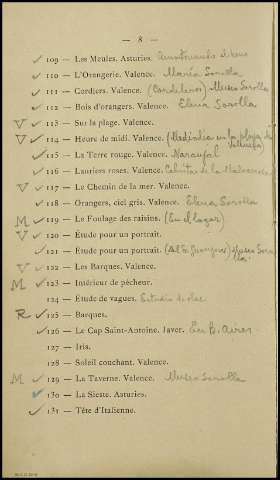 — 8 —
✓ 109 — Les Meules. Asturies.
✓ 110 — L'Orangerie. Valence. Maria Sorolla
✓ 111 — Cordiers. Valence. (Cordeleros) Museo Sorolla
✓ 112 — Bois d'orangers. Valence. Elena Sorolla
V ✓ 113 — Sur la plage. Valence.
V ✓ 114 — Heure de midi. Valence. (Mediodia en la playa de Valencia)
✓ 115 — La Terre rouge. Valence. Naranjal
✓ 116 — Lauriers roses. Valence. de la Malvarrosa
V ✓ 117 — Le Chemin de la mer. Valence.
✓ 118 — Orangers, ciel gris. Valence. Elena Sorolla
M ✓ 119 — Le Foulage des raisins. (En el lagar)
V ✓ 120 — Étude pour un portrait.
✓ 121 — Étude pour un portrait. Museo Sorolla
V ✓ 122 — Les Barques. Valence.
M ✓ 123 — Intérieur de pêcheur.
124 — Étude de vagues. Estudio de olas
R ✓ 125 — Barques.
✓ 126 — Le Cap Saint-Antoine. Javer. En B. Aires
127 — Iris.
128 — Soleil couchant. Valence.
M ✓ 129 — La Taverne. Valence. Museo Sorolla
✓ 130 — La Sieste. Asturies.
✓ 131 — Tête d'Italienne.